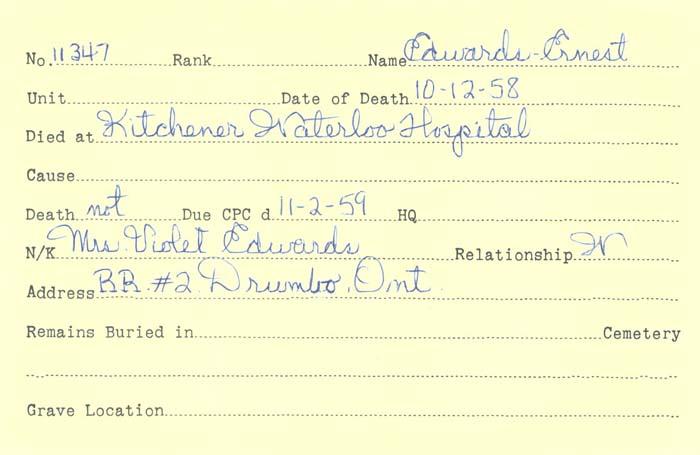 No. 11347 Rank Name Edwards-Ernest
Unit Date of Death 10-12-58
Died at Kitchener Waterloo Hospital
Cause
Death not Due CPC d 11-2-59 HQ
N/K Mrs. Violet Edwards Relationship W
Address RR. #2. Drumbo, Ont.
Remains Buried in Cemetery
Grave Location